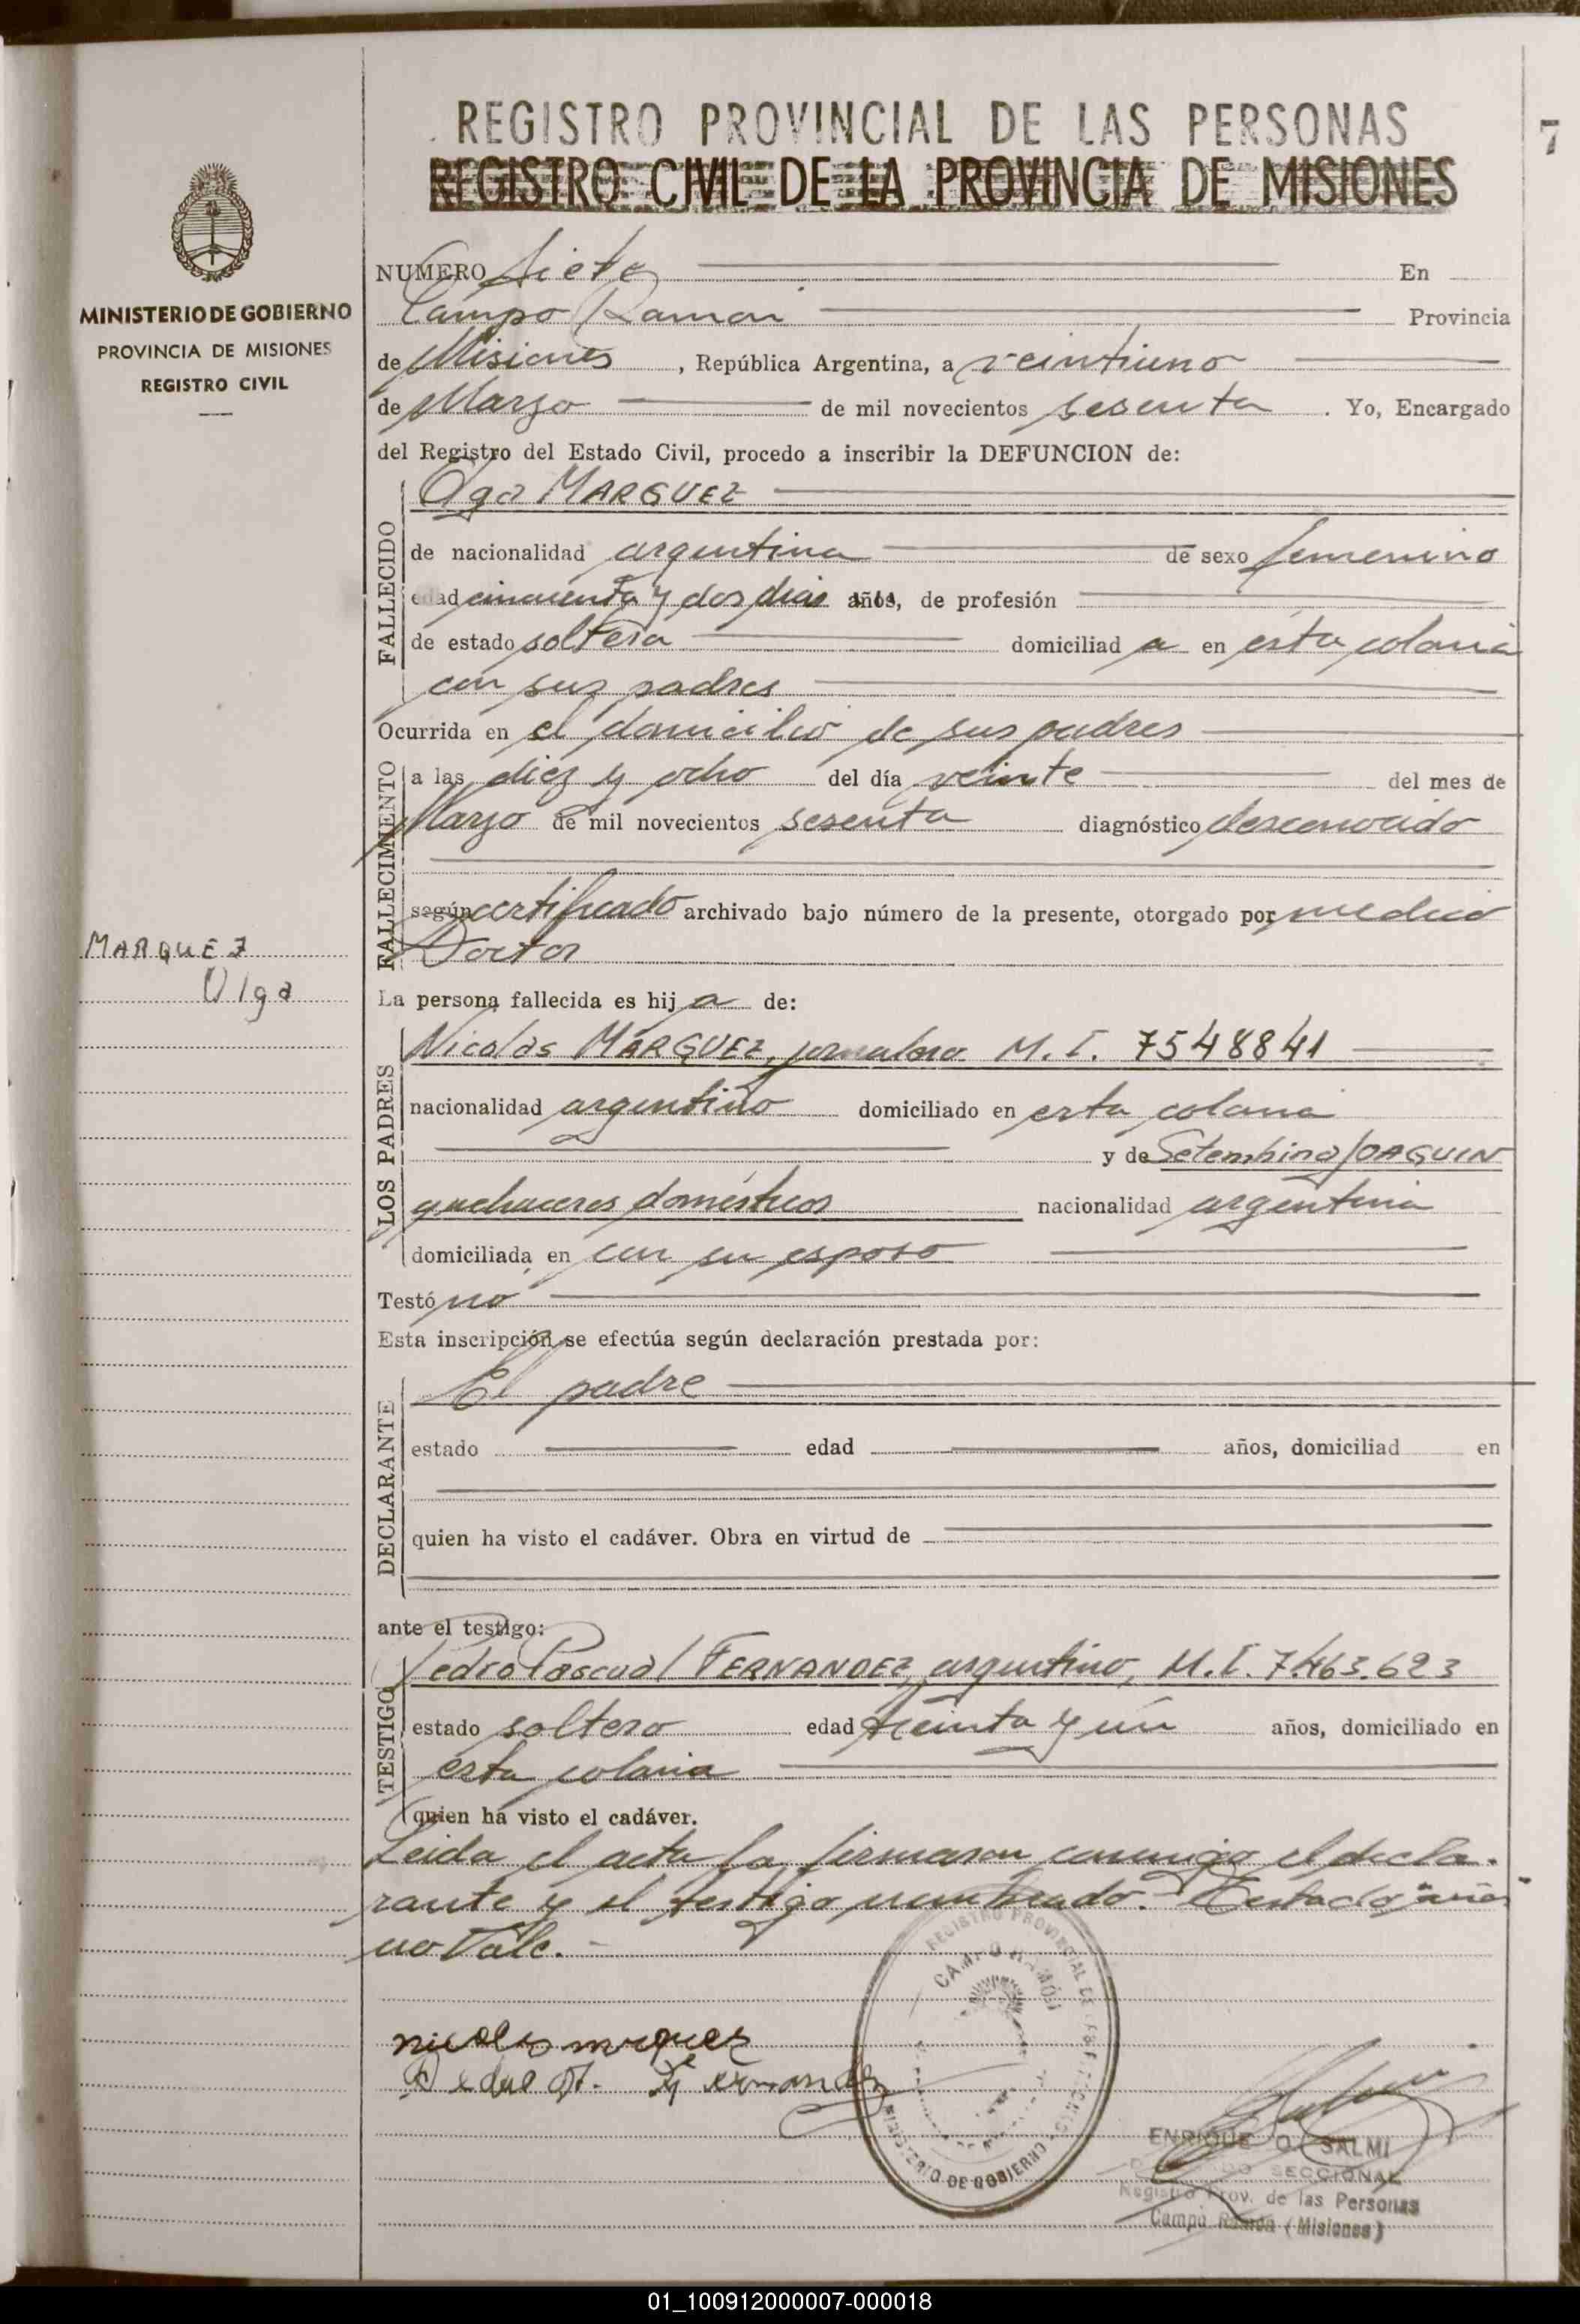 REGISTRO PROVINCIAL DE LAS PERSONAS
7
REGISTRO CIVIL DE LA PROVINCIA DE MISIONES
MINISTERIO DE GOBIERNO
PROVINCIA DE MISIONES
REGISTRO CIVIL
NUMERO Siete En
Campo Ramon Provincia
de Misiones, República Argentina, a veintiuno
de Marzo de mil novecientos sesenta. Yo, Encargado
del Registro del Estado Civil, procedo a inscribir la DEFUNCION de:
FALLECIDO
Olga MARQUEZ
de nacionalidad argentina de sexo femenino
edad cincuenta y dos dias años, de profesión
de estado soltera domiciliad a en esta colonia
con sus padres
Ocurrida en el domicilio de sus padres
FALLECIMIENTO
a las diez y ocho del día veinte del mes de
Marzo de mil novecientos sesenta diagnóstico desconocido
según certificado archivado bajo número de la presente, otorgado por medico
Doctor
MARQUEZ
Olga
La persona fallecida es hij a de:
LOS PADRES
Nicolás MARQUEZ, jornalero M. I. 7548841
nacionalidad argentino domiciliado en esta colonia
y de Setembina JOAQUIN
quehaceres domésticos nacionalidad argentina
domiciliada en con su esposo
Testó no
Esta inscripción se efectúa según declaración prestada por:
DECLARANTE
El padre
estado edad años, domiciliad en
quien ha visto el cadáver. Obra en virtud de
ante el testigo:
TESTIGO
Pedro Pascual FERNANDEZ, argentino, M. I. 7.463.623
estado soltero edad treinta y un años, domiciliado en
esta colonia
quien ha visto el cadáver.
Leida el acta la firmaron conmigo el decla-
rante y el testigo nombrado.- Testado "años"
no Vale.-
nicolas marques
Pedro P. Fernandez
REGISTRO PROVINCIAL DE LAS PERSONAS
CAMPO RAMÓN
MINISTERIO DE GOBIERNO
ENRIQUE O. SALMI
SECCIONAL
Registro Prov. de las Personas
Campo Ramón (Misiones)
01_100912000007-000018